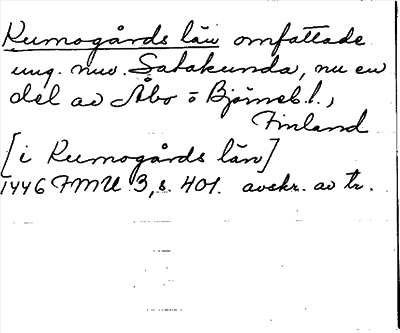 Kumogårds län omfattade
ung. nuv. Satakunda, nu en
del av Åbo o Björneb. l.,
Finland
[i Kumogårds län]
1446 FMU 3, s. 401. avskr. av tr.